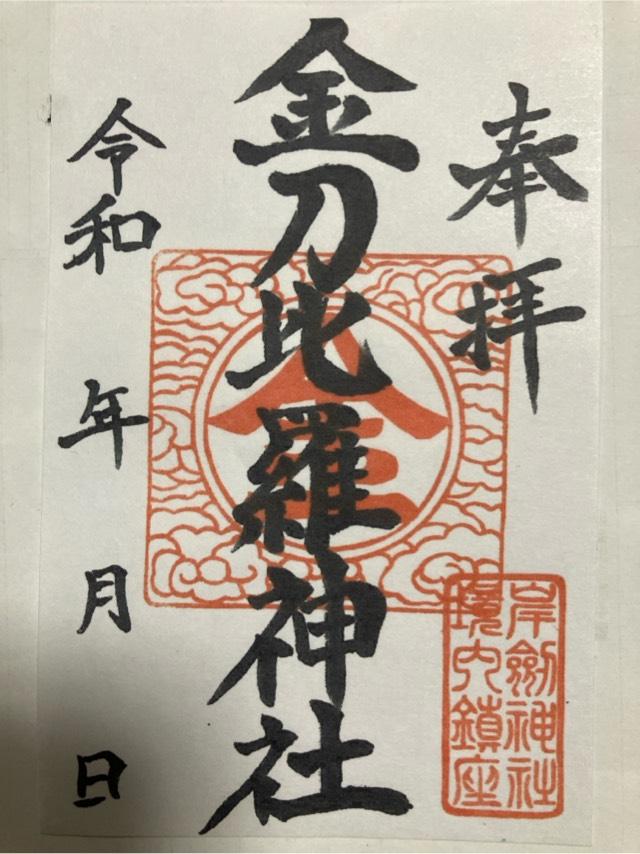 奉拝
金刀比羅神社
令和 年 月 日
金
岸剱神社
境内鎮座